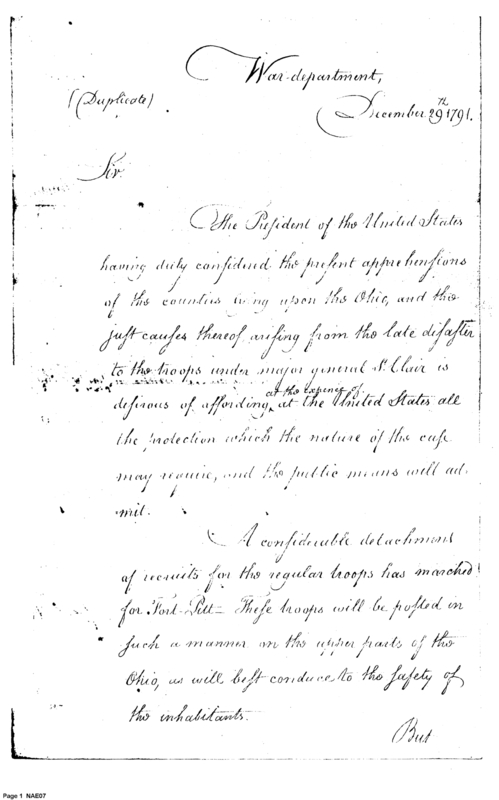 War-department,
(Duplicate)
December 29th 1791.
Sir.
The President of the United States
having duly considered the present apprehensions
of the counties lying upon the Ohio, and the
just causes thereof arising from the late disaster
to the troops under major general St. Clair is
at the expence of
desirous of affording, at the United States all
the protection which the nature of the case
may require, and the public means will ad-
mit.
A considerable detachment
of recruits for the regular troops has marched
for Fort-Pitt – These troops will be posted in
such a manner on the upper parts of the
Ohio, as will best conduce to the safety of
the inhabitants.
But
Page 1 NAE07